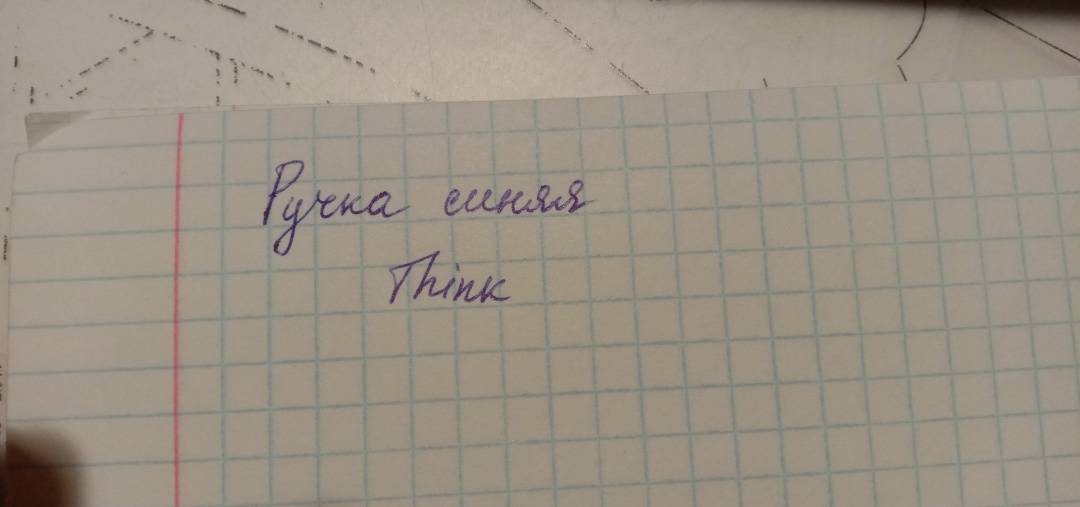 Ручка синяя
Think